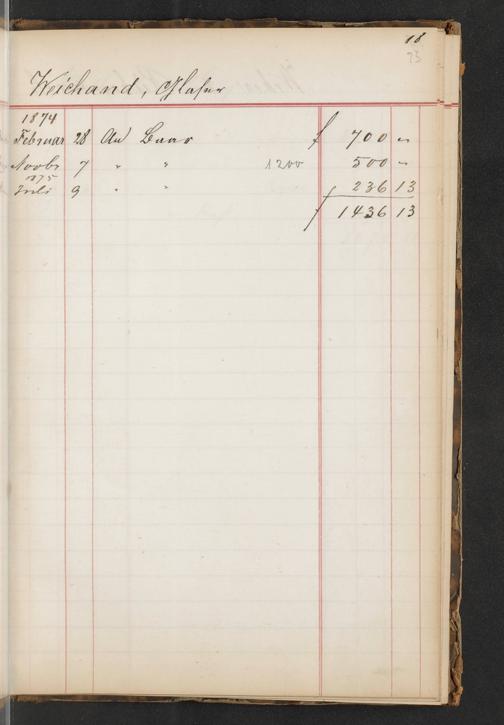 18
73
Weichand, Glaser
1874
Februar 28 An Baar f 700 "
Novbr 7 " " 1200 500 "
1875
Juli 9 " " 236 13
f 1436 13